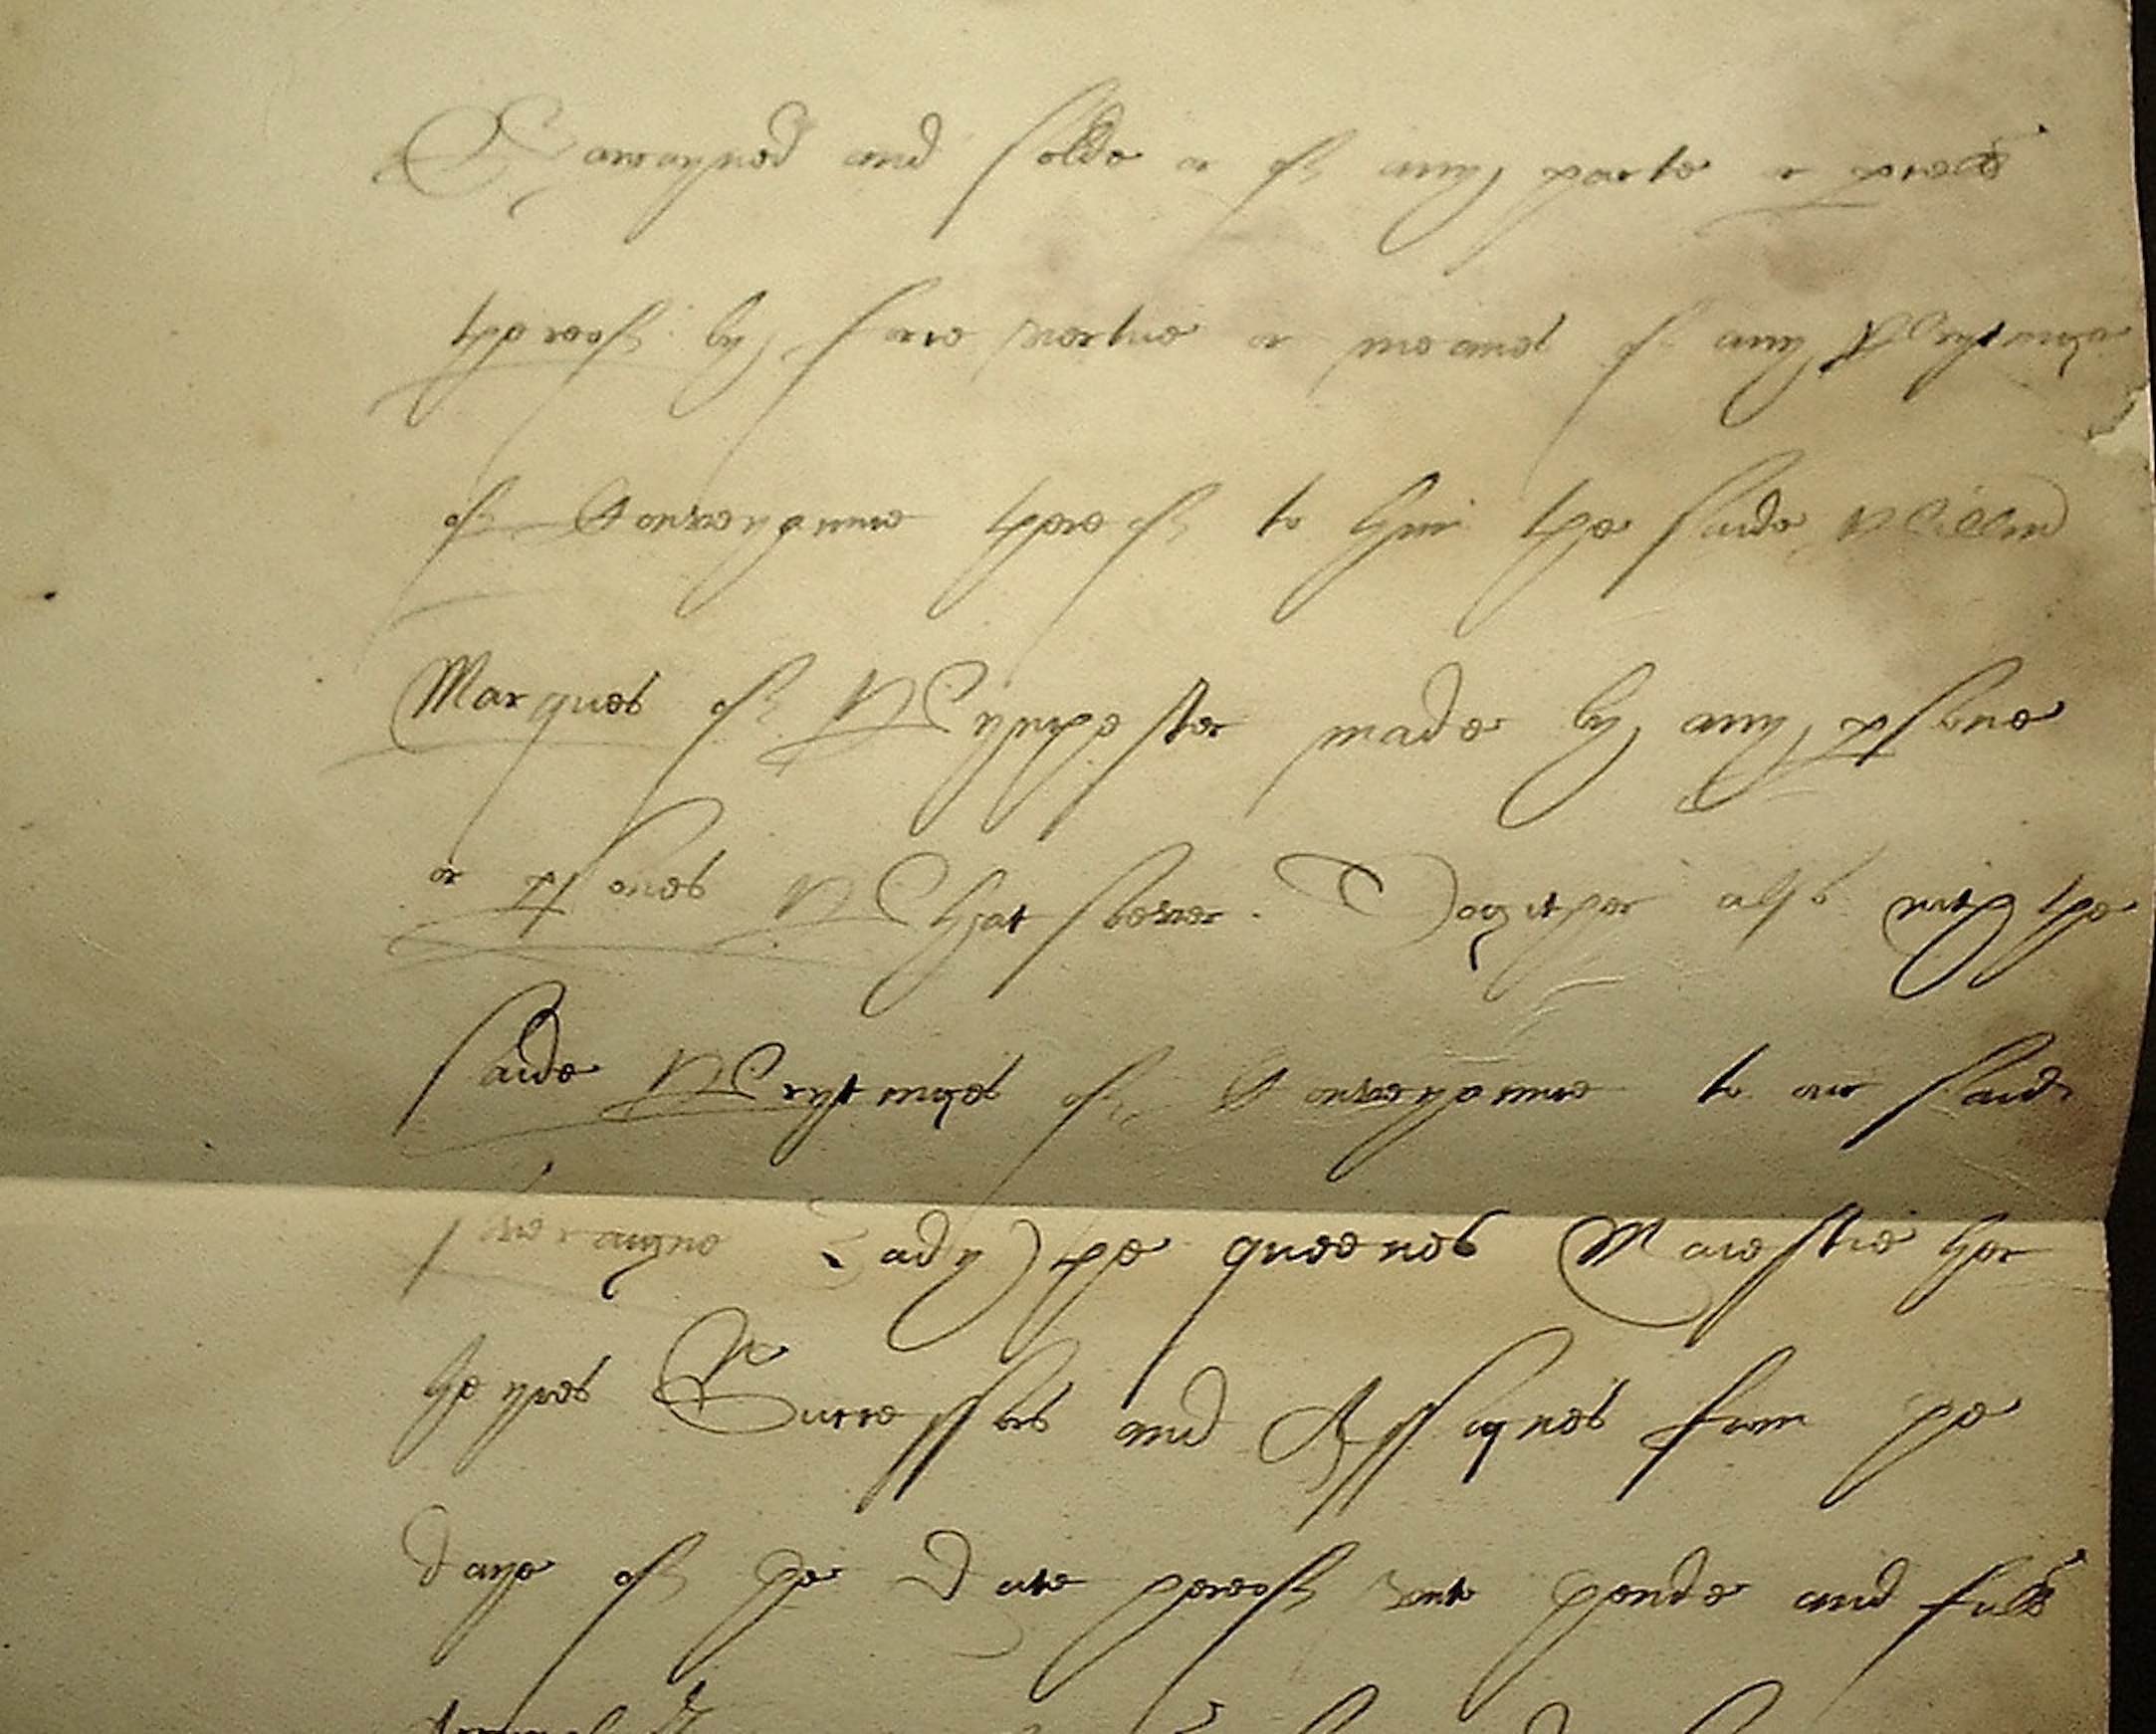 Bargayned and solde or of any parte or p[ar]cell
thereof by force vertue or meanes of any Wrytinge
of Conveyaunce thereof to hym the saide Will[ia]m
Marques of Wynchester made by any p[er]sone
or p[er]sones Whatsoever. Togither also with the
saide Wrytinges of Conveyaunce to our said
soveraigne Lady the queenes Maiestie her
heyres Successors and Assignes from the
daye of the Date hereof unto thende and full